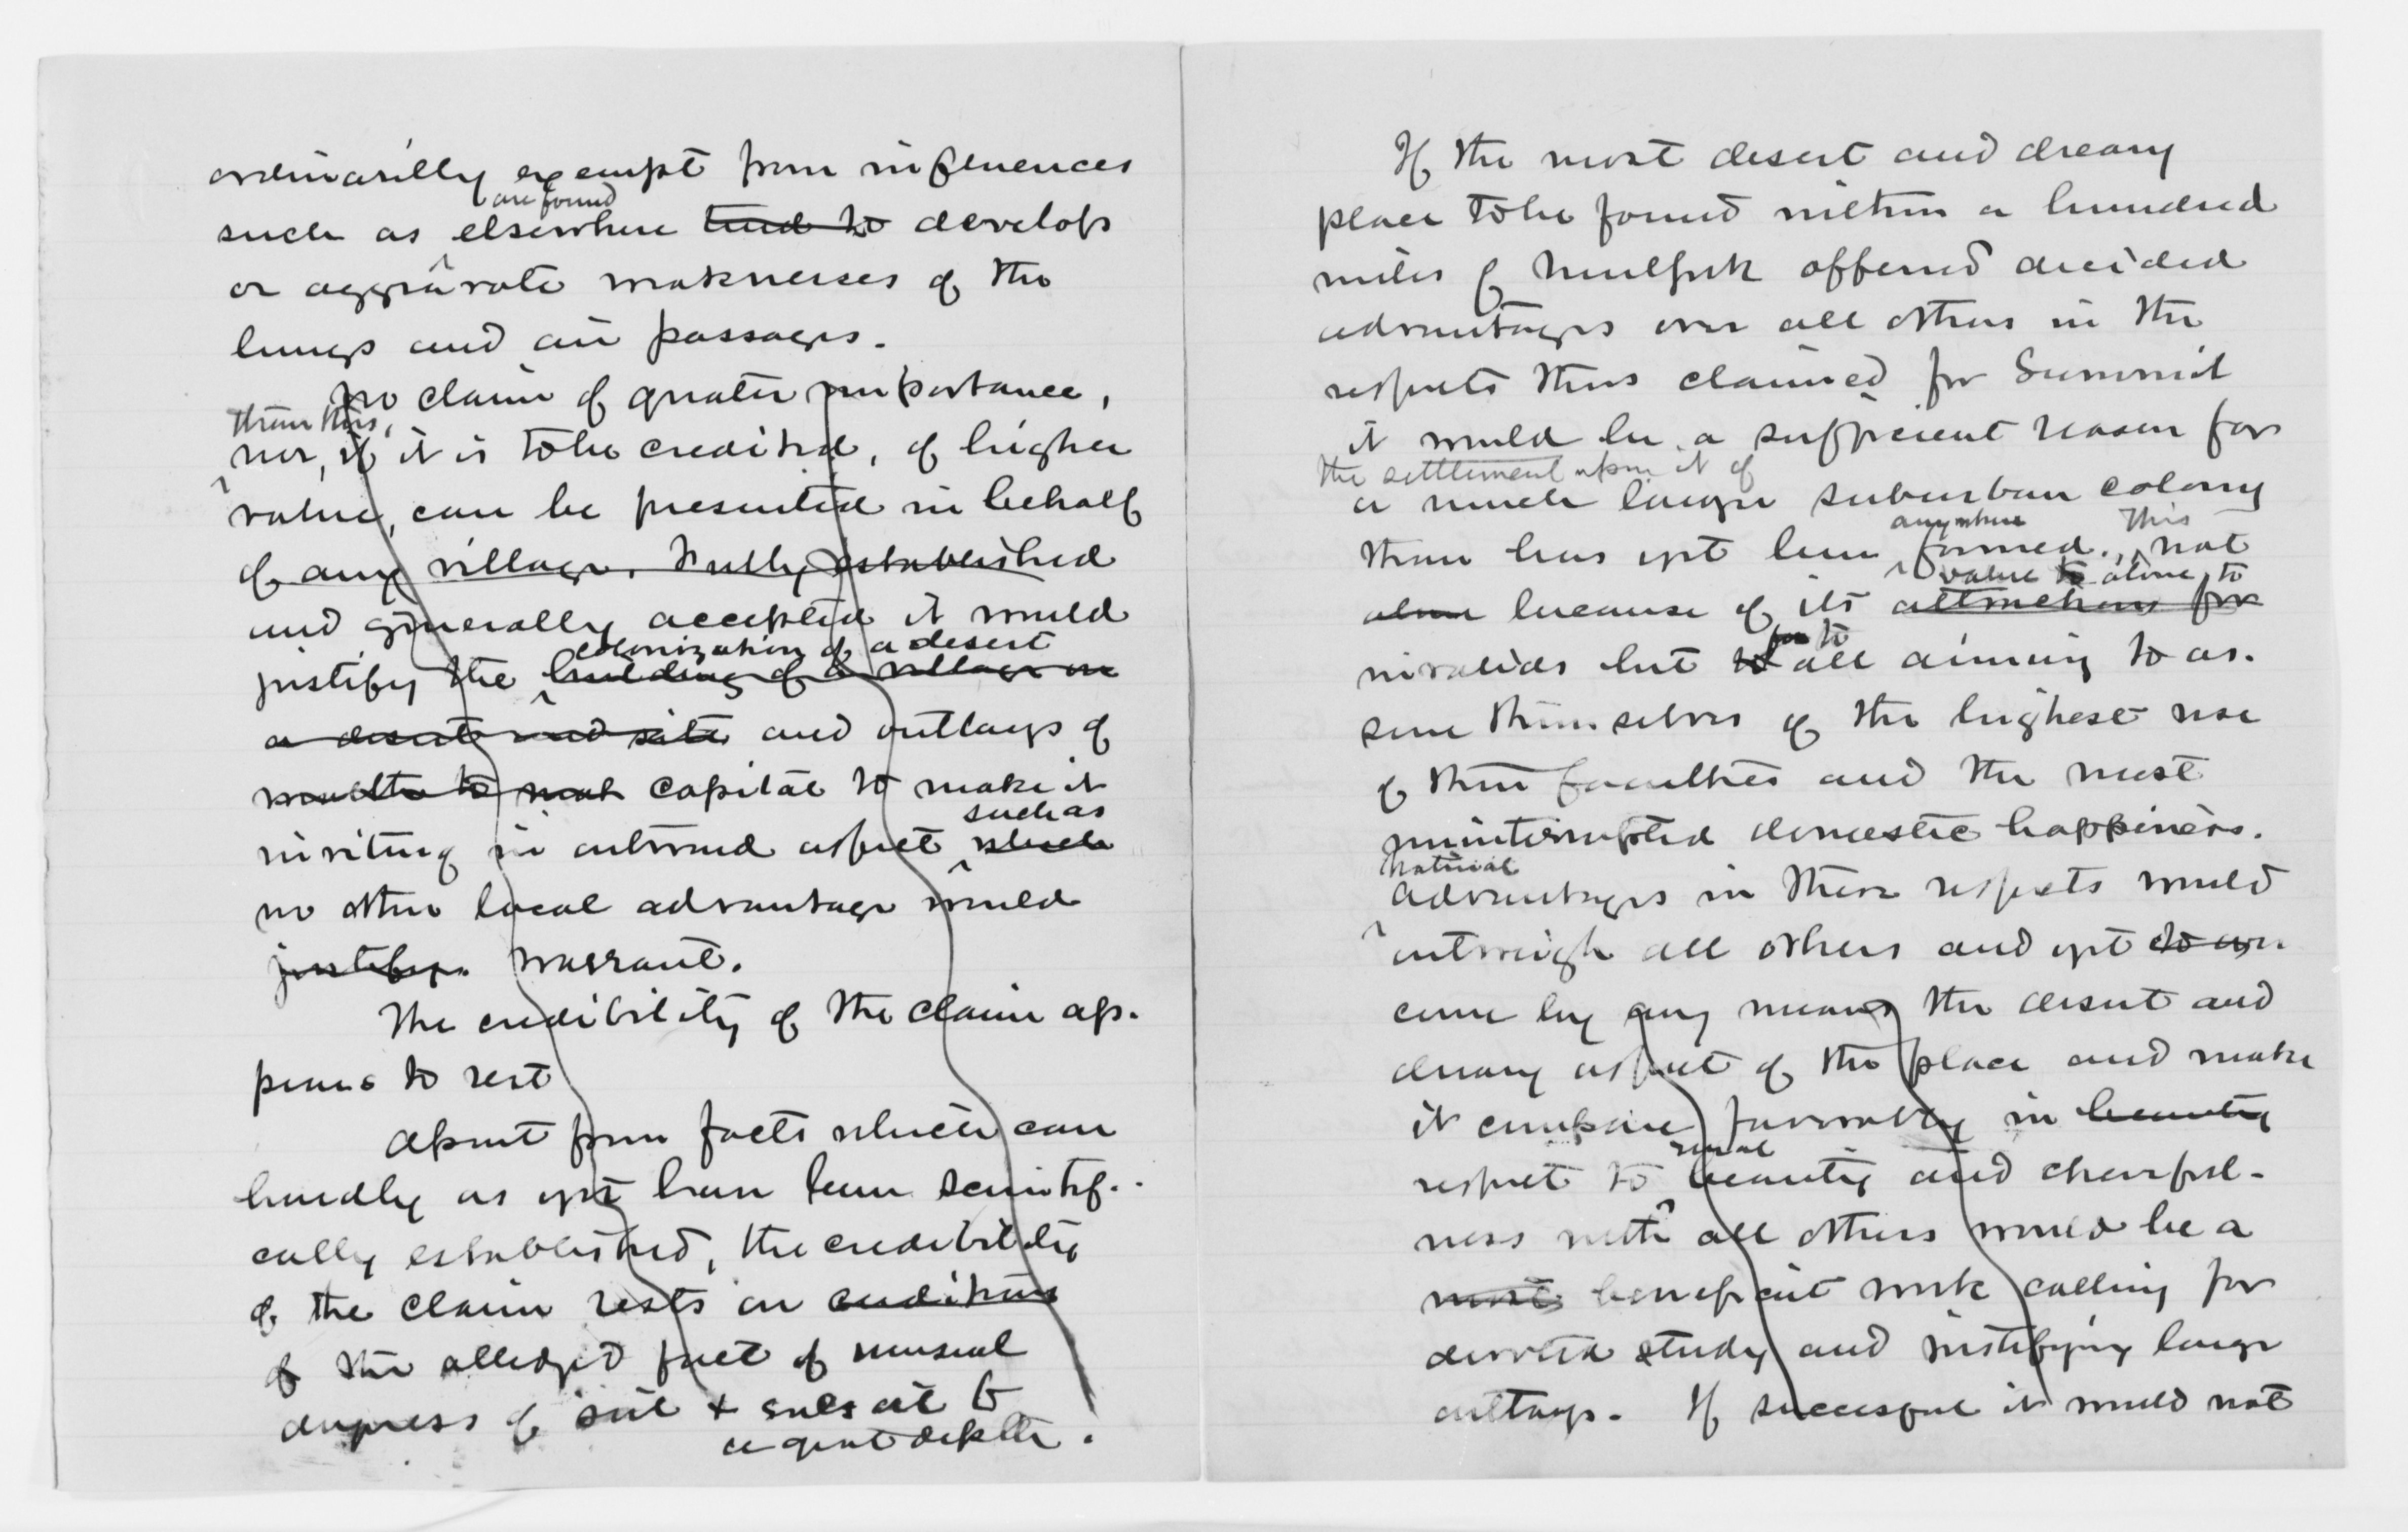 ordinarilly exempt from influences
are found
such as elsewhere tend to develop
or aggravate weaknesses of the
lungs and air passages.
No claim of greater importance,
than this,
nor, if it is to be credited, of higher
value, can be presented in behalf
of any village. Fully established
and generally accepted it would
colonization of a desert
justify the building of a village on
a desert and site and outlays of
capital to make it
such as
inviting in outward aspect which
no other local advantage would
justify. warrant.
The credibility of the claim ap-
pears to rest
Apart from facts which can
hardly as yet have been scientif-
cally established, the credibility
of the claim rests on conditions
of the alledged fact of unusual
dryness of soil & subsoil to
a great depth.
If the most desert and dreary
place to be found within a hundred
miles of New York offered decided
advantages over all others in the
respects thus claimed for Summit
it would be a sufficient reason for
the settlement upon it of
a much larger suburban colony
anywhere This
than has yet been formed., not
value to alone, to
alone because of its attractions for
for to
invalids but to all aiming to as-
sure themselves of the highest use
of their faculties and the most
uninterrupted domestic happiness.
Natural
Advantages in these respects would
outweigh all others and yet to over
come by any means the desert and
dreary aspect of the place and make
it compare favorably in beauty
rural
respect to beauty and cheerful-
ness with all others would be a
most beneficent work calling for
devoted study and justifying large
outlays. If successful it would not